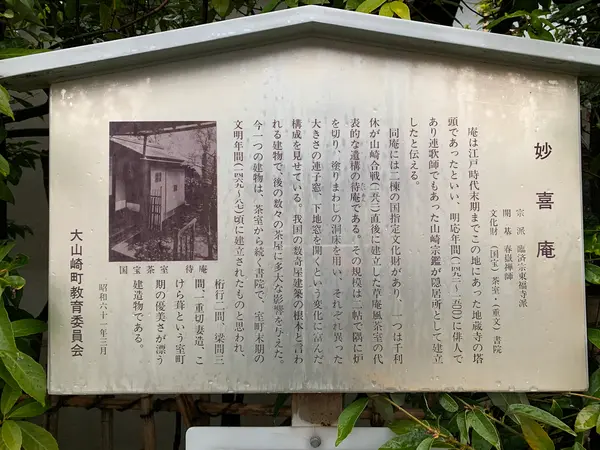 妙喜庵
宗派 臨済宗東福寺派
開基 春嶽禅師
文化財 (国宝)茶室・(重文)書院
庵は江戸時代末期までこの地にあった地蔵寺の塔
頭であったといい、明応年間(一四九二~一五〇一)に俳人で
あり連歌師でもあった山崎宗鑑が隠居所として建立
したと伝える。
同庵には二棟の国指定文化財があり、一つは千利
休が山崎合戦(一五八二)直後に建立した草庵風茶室の代
表的な遺構の待庵である。その規模は二帖で隅に炉
を切り、塗りまわしの洞床を用い、それぞれ異った
大きさの連子窓、下地窓を開くという変化に富んだ
構成を見せている。我国の数寄屋建築の根本と言わ
れる建物で、後の数々の茶屋に多大な影響を与えた。
今一つの建物は、茶室から続く書院で、室町末期の
文明年間(一四六九~八七)頃に建立されたものと思われ、
桁行二間 梁間三
間、一重切妻造、こ
けら葺という室町
期の優美さが漂う
建造物である。
国宝茶室 待庵
昭和六十一年三月
大山崎町教育委員会